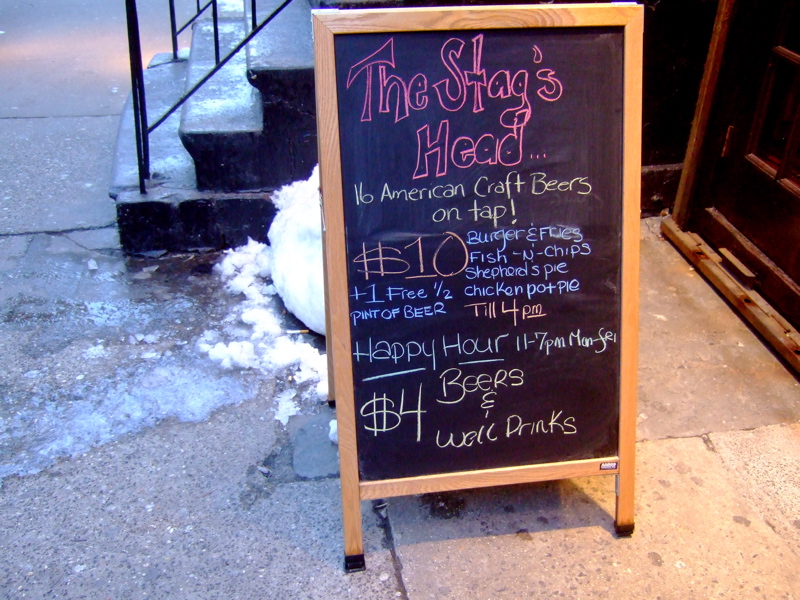 The Stag's
Head...
16 American Craft Beers
on tap!
$10
Burger & Fries
Fish-N-Chips
Shepherd's pie
chicken pot pie
+1 Free 1/2
PINT OF BEER
Till 4pm
Happy Hour 11-7pm Mon-fri
$4 Beers
&
well Drinks